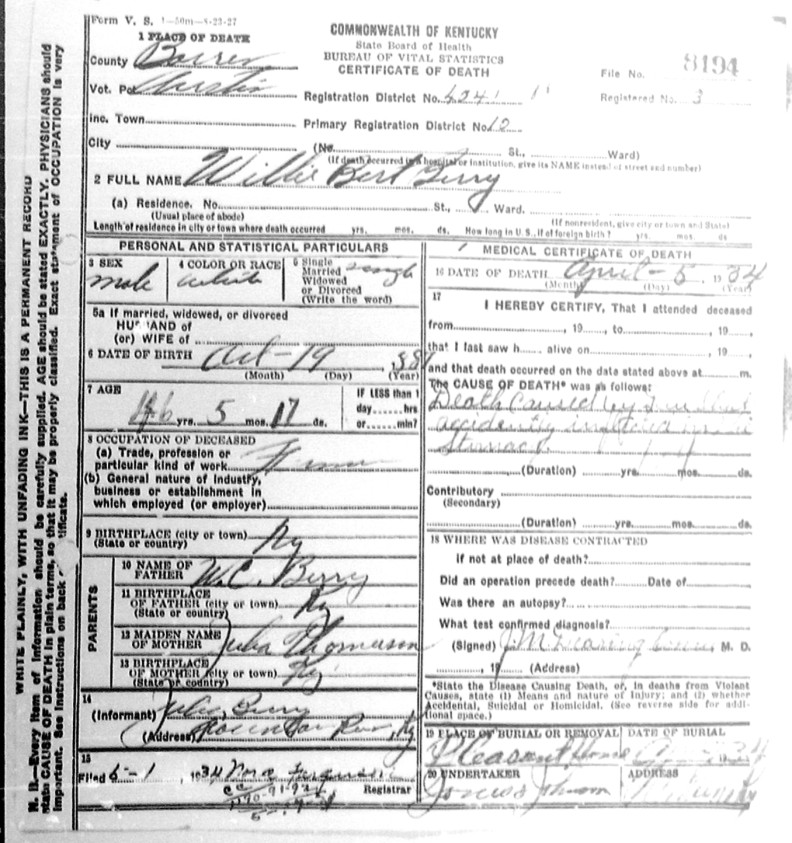 Form V. S. 1—50m—8-23-27
COMMONWEALTH OF KENTUCKY
State Board of Health
BUREAU OF VITAL STATISTICS
CERTIFICATE OF DEATH
1 PLACE OF DEATH
County Barren
Vot. Pct Austin
Inc. Town
City
File No. 8194
Registered No. 3
Registration District No.
Primary Registration District No. 12
(No. St., Ward)
(If death occurred in a hospital or institution, give its NAME instead of street and number)
2 FULL NAME Willie Bert Berry
(a) Residence. No. St., Ward.
(Usual place of abode)
(If nonresident, give city or town and State)
Length of residence in city or town where death occurred yrs. mos. ds. How long in U. S., if of foreign birth? yrs. mos. ds.
PERSONAL AND STATISTICAL PARTICULARS
3 SEX
male
4 COLOR OR RACE
white
5 Single
Married
Widowed
or Divorced
(Write the word)
single
5a If married, widowed, or divorced
HUSBAND of
(or) WIFE of
6 DATE OF BIRTH Oct-19
(Month) (Day) (Year)
7 AGE
46 yrs. 5 mos. 17 ds.
IF LESS than 1
day hrs.
or min?
8 OCCUPATION OF DECEASED
(a) Trade, profession or
particular kind of work
(b) General nature of industry,
business or establishment in
which employed (or employer)
9 BIRTHPLACE (city or town)
(State or country)
Ky
PARENTS
10 NAME OF
FATHER
W.C. Berry
11 BIRTHPLACE
OF FATHER (city or town)
(State or country)
Ky
12 MAIDEN NAME
OF MOTHER
Julia Thomason
13 BIRTHPLACE
OF MOTHER (city or town)
(State or country)
Ky
14
(Informant) Berry
(Address) Ky
15
Filed 5-1, 1934
Registrar
MEDICAL CERTIFICATE OF DEATH
16 DATE OF DEATH April-5 1934
(Month) (Day) (Year)
17
I HEREBY CERTIFY, That I attended deceased
from , 19 , to , 19 ,
that I last saw h alive on , 19 ,
and that death occurred on the date stated above at m.
The CAUSE OF DEATH* was as follows:
Death caused by
accidently inflicted
stomach
(Duration) yrs. mos. ds.
Contributory
(Secondary)
(Duration) yrs. mos. ds.
18 WHERE WAS DISEASE CONTRACTED
If not at place of death?
Did an operation precede death? Date of
Was there an autopsy?
What test confirmed diagnosis?
(Signed) J.M. M. D.
, 19 (Address)
*State the Disease Causing Death, or, in deaths from Violent
Causes, state (1) Means and nature of Injury; and (2) whether
Accidental, Suicidal or Homicidal. (See reverse side for addi-
tional space.)
19 PLACE OF BURIAL OR REMOVAL
Pleasant
DATE OF BURIAL
20 UNDERTAKER
Johnson
ADDRESS
WRITE PLAINLY, WITH UNFADING INK—THIS IS A PERMANENT RECORD
N. B.—Every item of information should be carefully supplied. AGE should be stated EXACTLY. PHYSICIANS should
state CAUSE OF DEATH in plain terms, so that it may be properly classified. Exact statement of OCCUPATION is very
important. See instructions on back